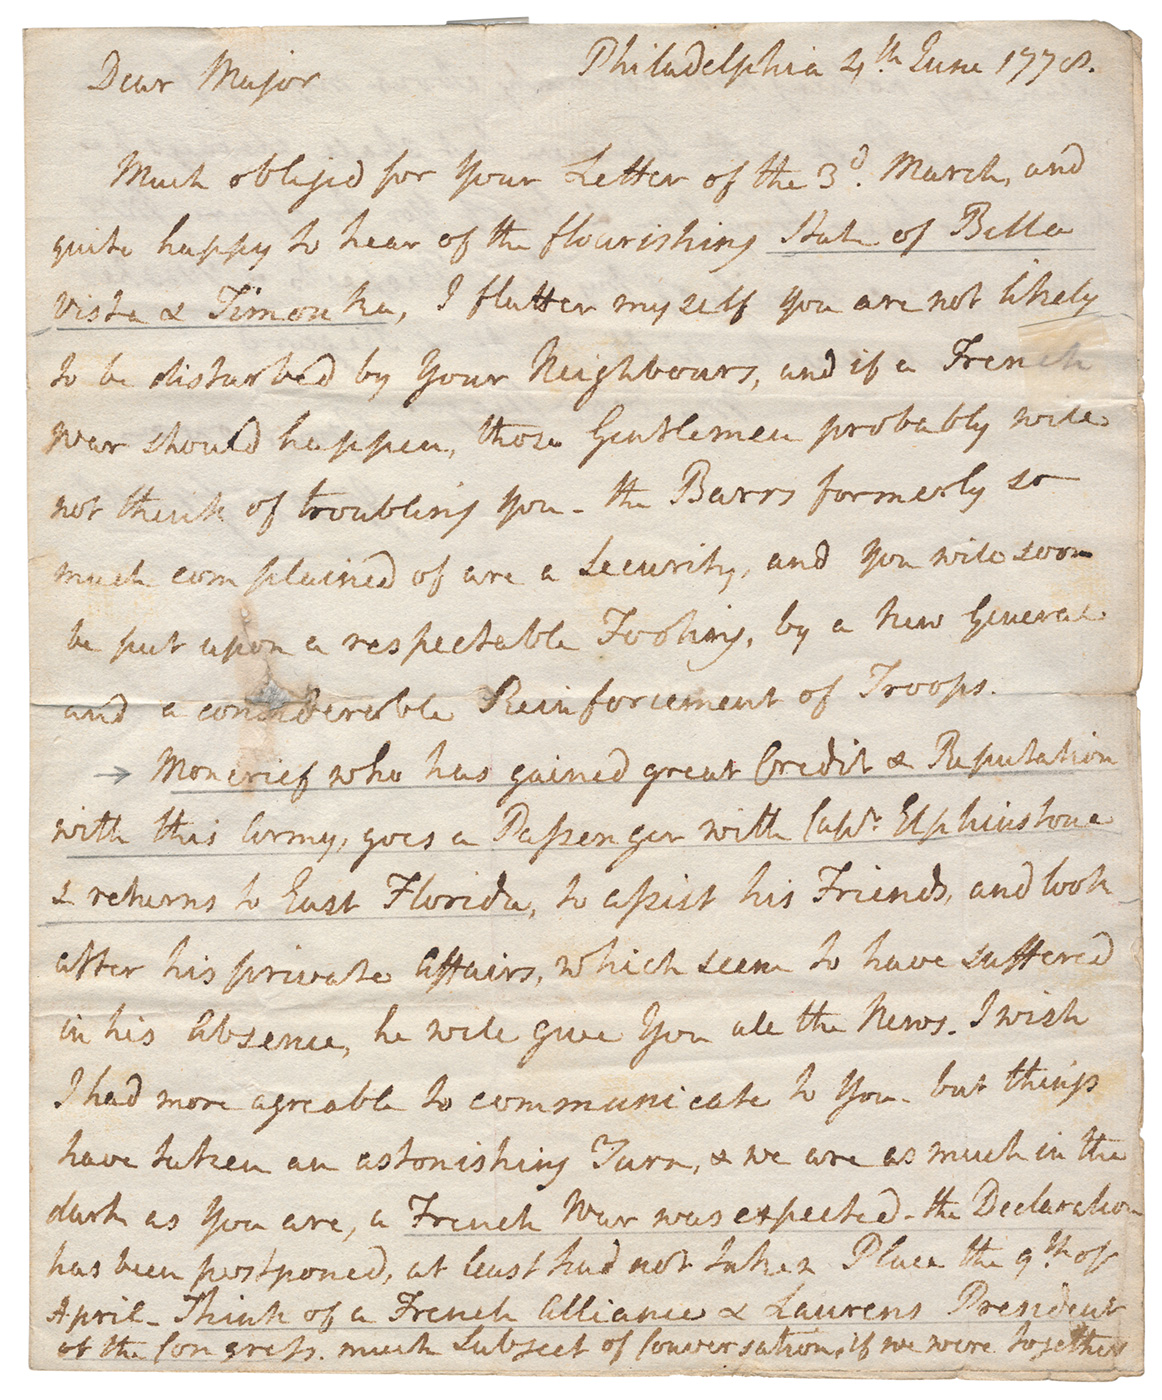 Dear Major Philadelphia 4th. June 1778.
Much obliged for Your Letter of the 3d. March, and
quite happy to hear of the flourishing State of Bella
Vista & Timouka, I flatter myself You are not likely
to be disturbed by Your Neighbours, and if a French
War should happen, those Gentlemen probably will
not think of troubling You - the Barrs formerly so
much complained of are a Security, and You will soon
be put upon a respectable Footing, by a New General
and a considerable Reinforcement of Troops.
→ Moncrief who has gained great Credit & Reputation
with this Army, goes a Passenger with Capt. Elphinstone
& returns to East Florida, to assist his Friends, and look
after his private Affairs, which seem to have suffered
in his Absence, he will give You all the News. I wish
I had more agreable to communicate to You - but things
have taken an astonishing Turn, & we are as much in the
dark as You are, a French War was expected - the Declaration
has been postponed, at least had not taken Place the 9th of
April - Think of a French Alliance & Laurens President
of the Congress. much Subject of Conversation, if we were together